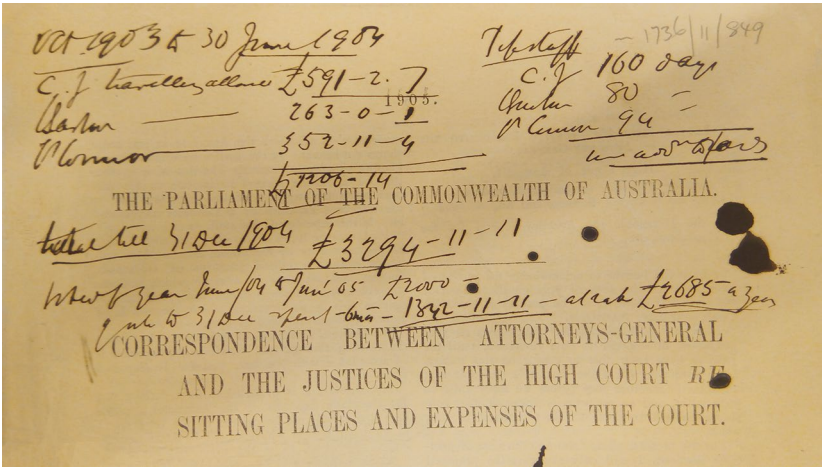 Oct 1903 to 30 June 1904
C.J. travelling allowce £591-2-7
Barton 263-0-1
O'Connor 352-11-4
£1206-14
Tipstaff
C.J 160 days
Barton 80 -
O'Connor 94
1736/11/849
1905.
THE PARLIAMENT OF THE COMMONWEALTH OF AUSTRALIA.
Total till 31 Dec 1904 £3294-11-11
year June/04 to June 05 £2000 -
to 31 Dec spent 6 mos - 1342-11-11 - at rate £2685 a year
CORRESPONDENCE BETWEEN ATTORNEYS-GENERAL
AND THE JUSTICES OF THE HIGH COURT RE
SITTING PLACES AND EXPENSES OF THE COURT.